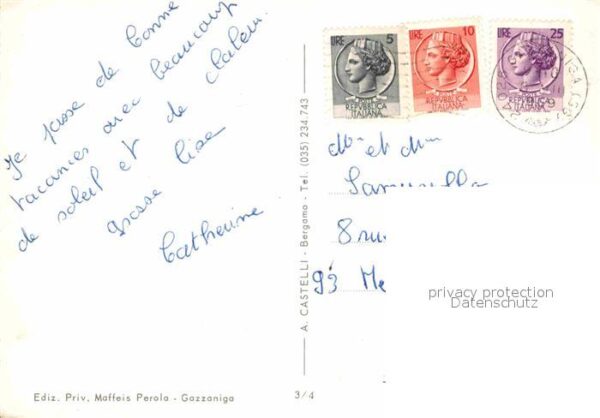 Je passe de bonne
vacances avec beaucoup
de soleil et de chaleur
grosse bise
Catherine
A. CASTELLI - Bergamo - Tel. (035) 234.743
Ediz. Priv. Maffeis Perola - Gazzaniga
3/4
LIRE 5
REPVBBLICA
ITALIANA
LIRE 10
REPVBBLICA
ITALIANA
LIRE 25
REPVBBLICA
ITALIANA
et
8 rue
93 Me
privacy protection
Datenschutz